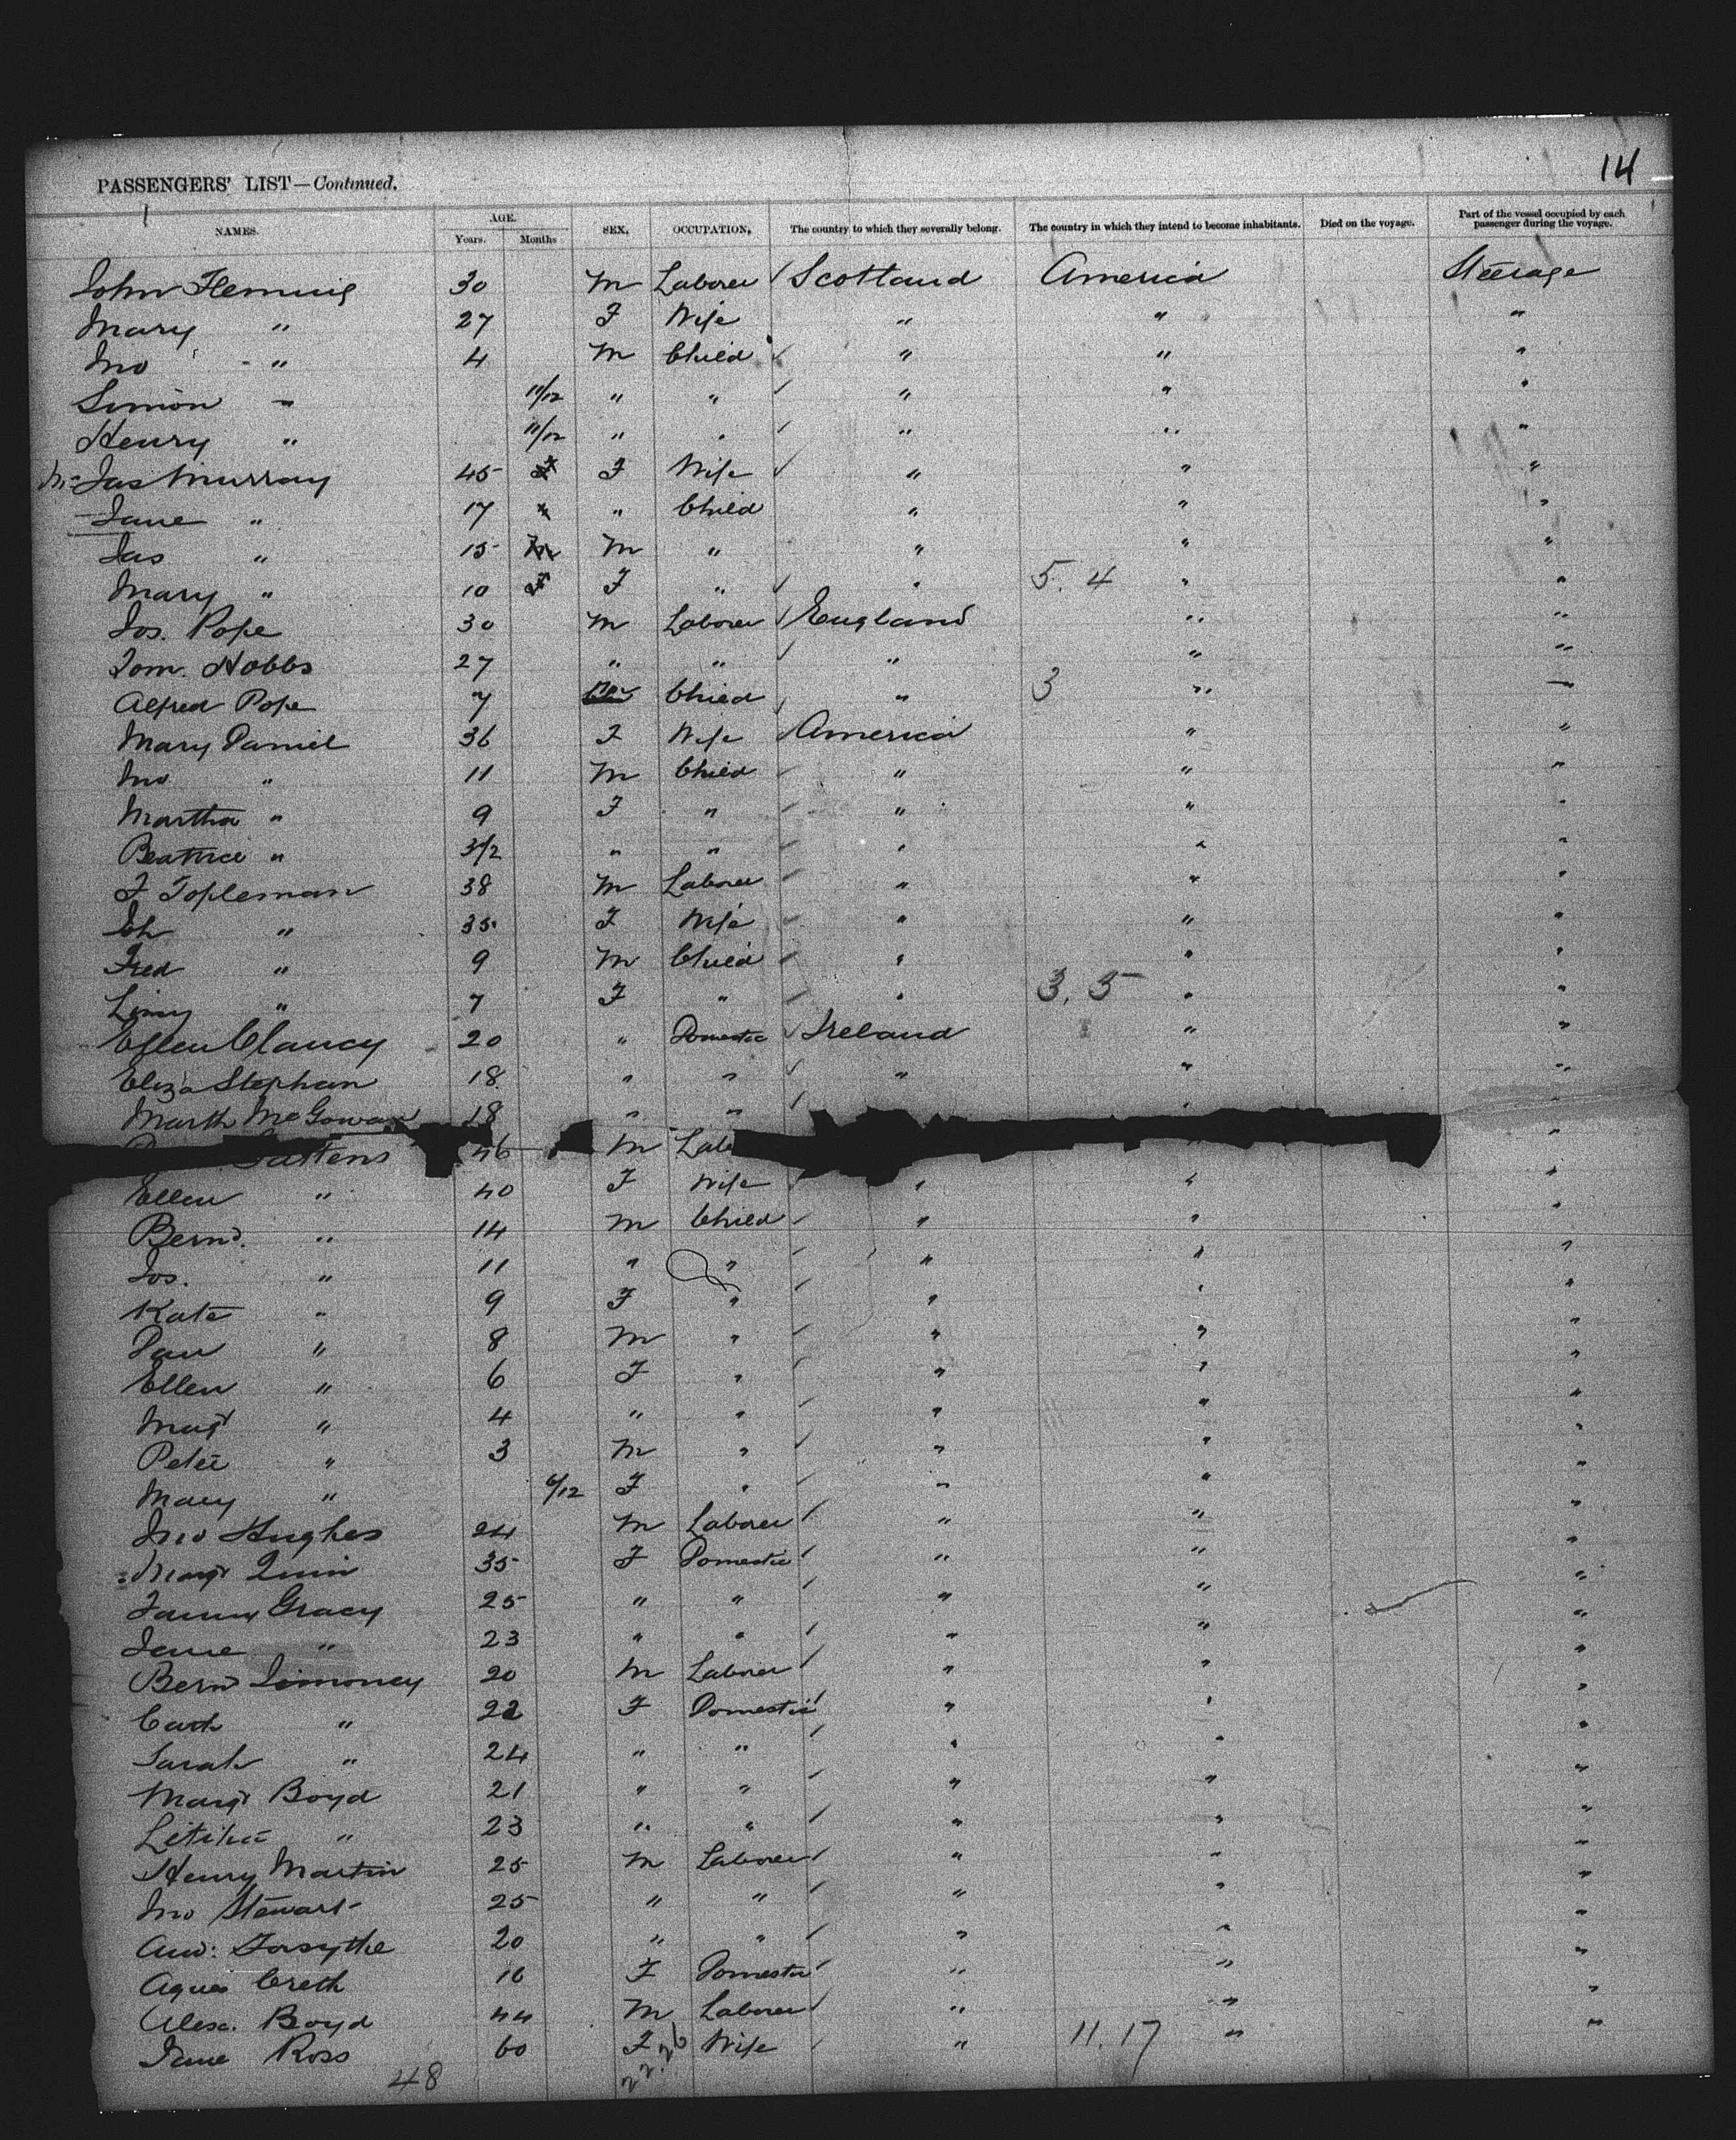 14
PASSENGERS' LIST—Continued.
NAMES. AGE. Years. Months SEX. OCCUPATION. The country to which they severally belong. The country in which they intend to become inhabitants. Died on the voyage. Part of the vessel occupied by each passenger during the voyage.
John Fleming 30 M Laborer Scotland America Steerage
Mary " 27 F Wife " " "
Jno " 4 M Child " " "
Simon " 11/12 " " " " "
Henry " 11/12 " " " " "
Jas Murray 45 F F Wife " " "
Jane " 17 " Child " " "
Jas " 15 M M " " " "
Mary " 10 F F " " 5. 4 " "
Jos. Pope 30 M Laborer England " "
Tom. Hobbs 27 " " " " "
Alfred Pope 7 M Child " 3 " "
Mary Daniel 36 F Wife America " "
Jno " 11 M Child " " "
Martha " 9 F " " " "
Beatrice " 3/2 " " " " "
F Topleman 38 M Laborer " " "
Eh " 35 F Wife " " "
Fred " 9 M Child " " "
" 7 F " " 3. 5 " "
Ellen Clancy 20 " Domestic Ireland " "
Eliza Stephan 18 " " " " "
Marth McGowan 18 " " "
46 M Lab " "
Ellen " 40 F Wife " " "
Bernd. " 14 M Child " " "
Jos. " 11 " " " " "
Kate " 9 F " " " "
Dan " 8 M " " " "
Ellen " 6 F " " " "
Magt " 4 " " " " "
Peter " 3 M " " " "
Mary " 6/12 F " " " "
Jno Hughes 24 M Laborer " " "
Margt Quin 35 F Domestic " " "
Fanny Gracy 25 " " " " "
Jane " 23 " " " " "
Bernd Timoney 20 M Laborer " " "
Cath " 22 F Domestic " " "
Sarah " 24 " " " " "
Margt Boyd 21 " " " " "
Letitia " 23 " " " " "
Henry Martin 25 M Laborer " " "
Jno Stewart 25 " " " " "
And: Forsythe 20 " " " " "
Agnes Creth 16 F Domestic " " "
Alex. Boyd 44 M Laborer " " "
Jane Ross 60 F Wife " 11. 17 " "
48 22.26